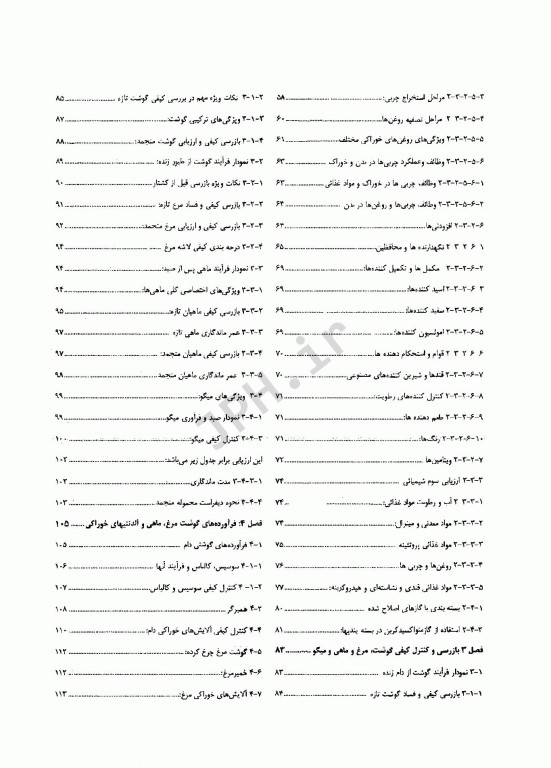 ۲-۳-۲-۵-۳ مراحل استخراج چربی: ۵۸
۲-۳-۲-۵-۴ مراحل تصفیه روغن‌ها ۶۰
۲-۳-۲-۵-۵ ویژگی‌های روغن‌های خوراکی مختلف ۶۱
۲-۳-۲-۵-۶ وظائف وعملکرد چربی‌ها در بدن و خوراک ۶۳
۲-۳-۲-۵-۶-۱ وظائف چربی ها در خوراک و مواد غذائی ۶۳
۲-۳-۲-۵-۶-۲ وظائف چربی‌ها و روغن‌ها در بدن ۶۴
۲-۳-۲-۶ افزودنی‌ها ۶۴
۲ ۳ ۲ ۶ ۱ نگهدارنده ها و محافظین ۶۵
۲-۳-۲-۶-۲ مکمل ها و تکمیل کننده‌ها: ۶۹
۲-۳-۲-۶-۳ اسید کننده‌ها: ۶۹
۲-۳-۲-۶-۴ سفید کننده‌ها: ۶۹
۲-۳-۲-۶-۵ امولسیون کننده‌ها: ۶۹
۲ ۳ ۲ ۶ ۶ قوام و استحکام دهنده ها ۷۰
۲-۳-۲-۶-۷ قندها و شیرین کننده‌های مصنوعی ۷۰
۲-۳-۲-۶-۸ کنترل کننده‌های رطوبت: ۷۱
۲-۳-۲-۶-۹ طعم دهنده ها: ۷۱
۲-۳-۲-۶-۱۰ رنگ‌ها: ۷۱
۲-۳-۲-۷ ویتامین‌ها ۷۲
۲-۳-۳ ارزیابی سوم شیمیائی ۷۴
۲ ۳-۳-۱ آب و رطوبت مواد غذائی: ۷۴
۲-۳-۳-۲ مواد معدنی و مینرال: ۷۴
۲-۳-۳-۳ مواد غذائی پروتئینه ۷۵
۲-۳-۳-۴ روغن‌ها و چربی ها ۷۶
۲-۳-۳-۵ مواد غذائی قندی و نشاسته‌ای و هیدروکربنه: ۷۷
۲-۴-۱ بسته بندی با گازهای اصلاح شده ۸۰
۲-۴-۲ استفاده از گازمنواکسیدکربن در بسته بندیها: ۸۱
فصل ۳ بازرسی و کنترل کیفی گوشت، مرغ و ماهی و میگو ۸۳
۳-۱ نمودار فرآیند گوشت از دام زنده ۸۳
۳-۱-۱ بازرسی کیفی و فساد گوشت تازه ۸۴
۳-۱-۲ نکات ویژه مهم در بررسی کیفی گوشت تازه ۸۵
۳-۱-۳ ویژگی‌های ترکیبی گوشت: ۸۷
۳-۱-۴ بازرسی کیفی و ارزیابی گوشت منجمد: ۸۸
۳-۲ نمودار فرآیند گوشت از طیور زنده: ۸۹
۳-۲-۱ نکات ویژه بازرسی قبل از کشتار ۹۰
۳-۲-۲ بازرسی کیفی و فساد مرغ تازه: ۹۱
۳-۲-۳ بازرسی کیفی و ارزیابی مرغ منجمد: ۹۲
۳-۲-۴ درجه بندی کیفی لاشه مرغ ۹۳
۳-۳ نمودار فرآیند ماهی پس از صید: ۹۴
۳-۳-۱ ویژگی‌های اختصاصی کلی ماهی‌ها: ۹۴
۳-۳-۲ بازرسی کیفی ماهیان تازه: ۹۵
۳-۳-۳ عمر ماندگاری ماهی تازه ۹۷
۳-۳-۴ بازرسی کیفی ماهیان منجمد: ۹۷
۳-۳-۵ عمر ماندگاری ماهیان منجمد ۹۸
۳-۴ ویژگی‌های میگو: ۹۹
۳-۴-۱ نمودار صید و فرآوری میگو: ۹۹
۳-۴-۲ کنترل کیفی میگو: ۱۰۰
این ارزیابی برابر جدول زیر می‌باشد: ۱۰۲
۳-۴-۲-۱ مدت ماندگاری: ۱۰۲
۴-۴-۴ نحوه دیفراست محموله منجمد ۱۰۳
فصل ۴: فرآورده‌های گوشت مرغ، ماهی و آلائشهای خوراکی ۱۰۵
۴-۱ فرآورده‌های گوشتی دام ۱۰۵
۴-۱-۱ سوسیس، کالباس و فرآیند آنها ۱۰۶
۴ ۱-۲ کنترل کیفی سوسیس و کالباس ۱۰۷
۴-۲ همبرگر ۱۰۸
۴-۴ کنترل کیفی آلایش‌های خوراکی دام: ۱۱۰
۴-۵ گوشت مرغ چرخ کرده: ۱۱۲
۴-۶ خمیرمرغ: ۱۱۲
۴-۷ آلایش‌های خوراکی مرغ: ۱۱۳
JPH.ir